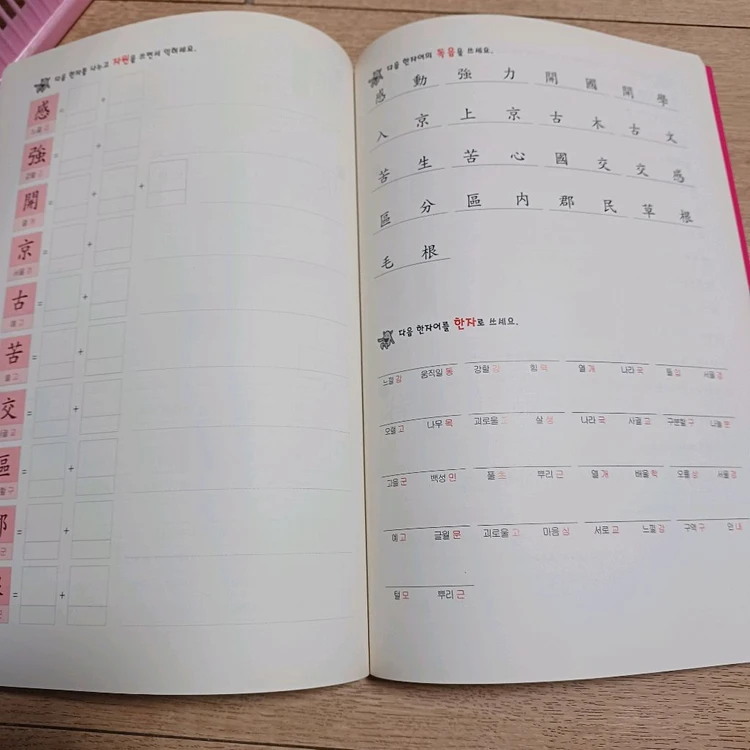 다음 한자를 나누고 자원을 쓰면서 익히세요.
感 =
느낄 감
强 = +
강할 강
開 + +
열 개
京 = +
서울 경
古 = +
예 고
苦 = +
쓸 고
交 = +
사귈 고
區 = +
구
= +
군
= +
다음 한자어의 독음을 쓰세요.
感 動 強 力 開 國 開 學
入 京 上 京 古 木 古 文
苦 生 苦 心 國 交 交 感
區 分 區 内 郡 民 草 根
毛 根
다음 한자어를 한자로 쓰세요.
느낄 감 움직일 동 강할 강 힘 력 열 개 나라 국 들 입 서울 경
오랠 고 나무 목 괴로울 고 살 생 나라 국 사귈 교 구분할 구 나눌 분
고을 군 백성 민 풀 초 뿌리 근 열 개 배울 학 오를 상 서울 경
예 고 글월 문 괴로울 고 마음 심 서로 교 느낄 감 구역 구 안 내
털 모 뿌리 근